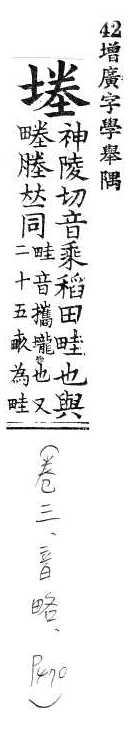 42增廣字學舉隅
堘
神陵切音乘稻田畦也與
塍同
畦音攜壠也又
二十五畝為畦
(卷三、音略、P470)